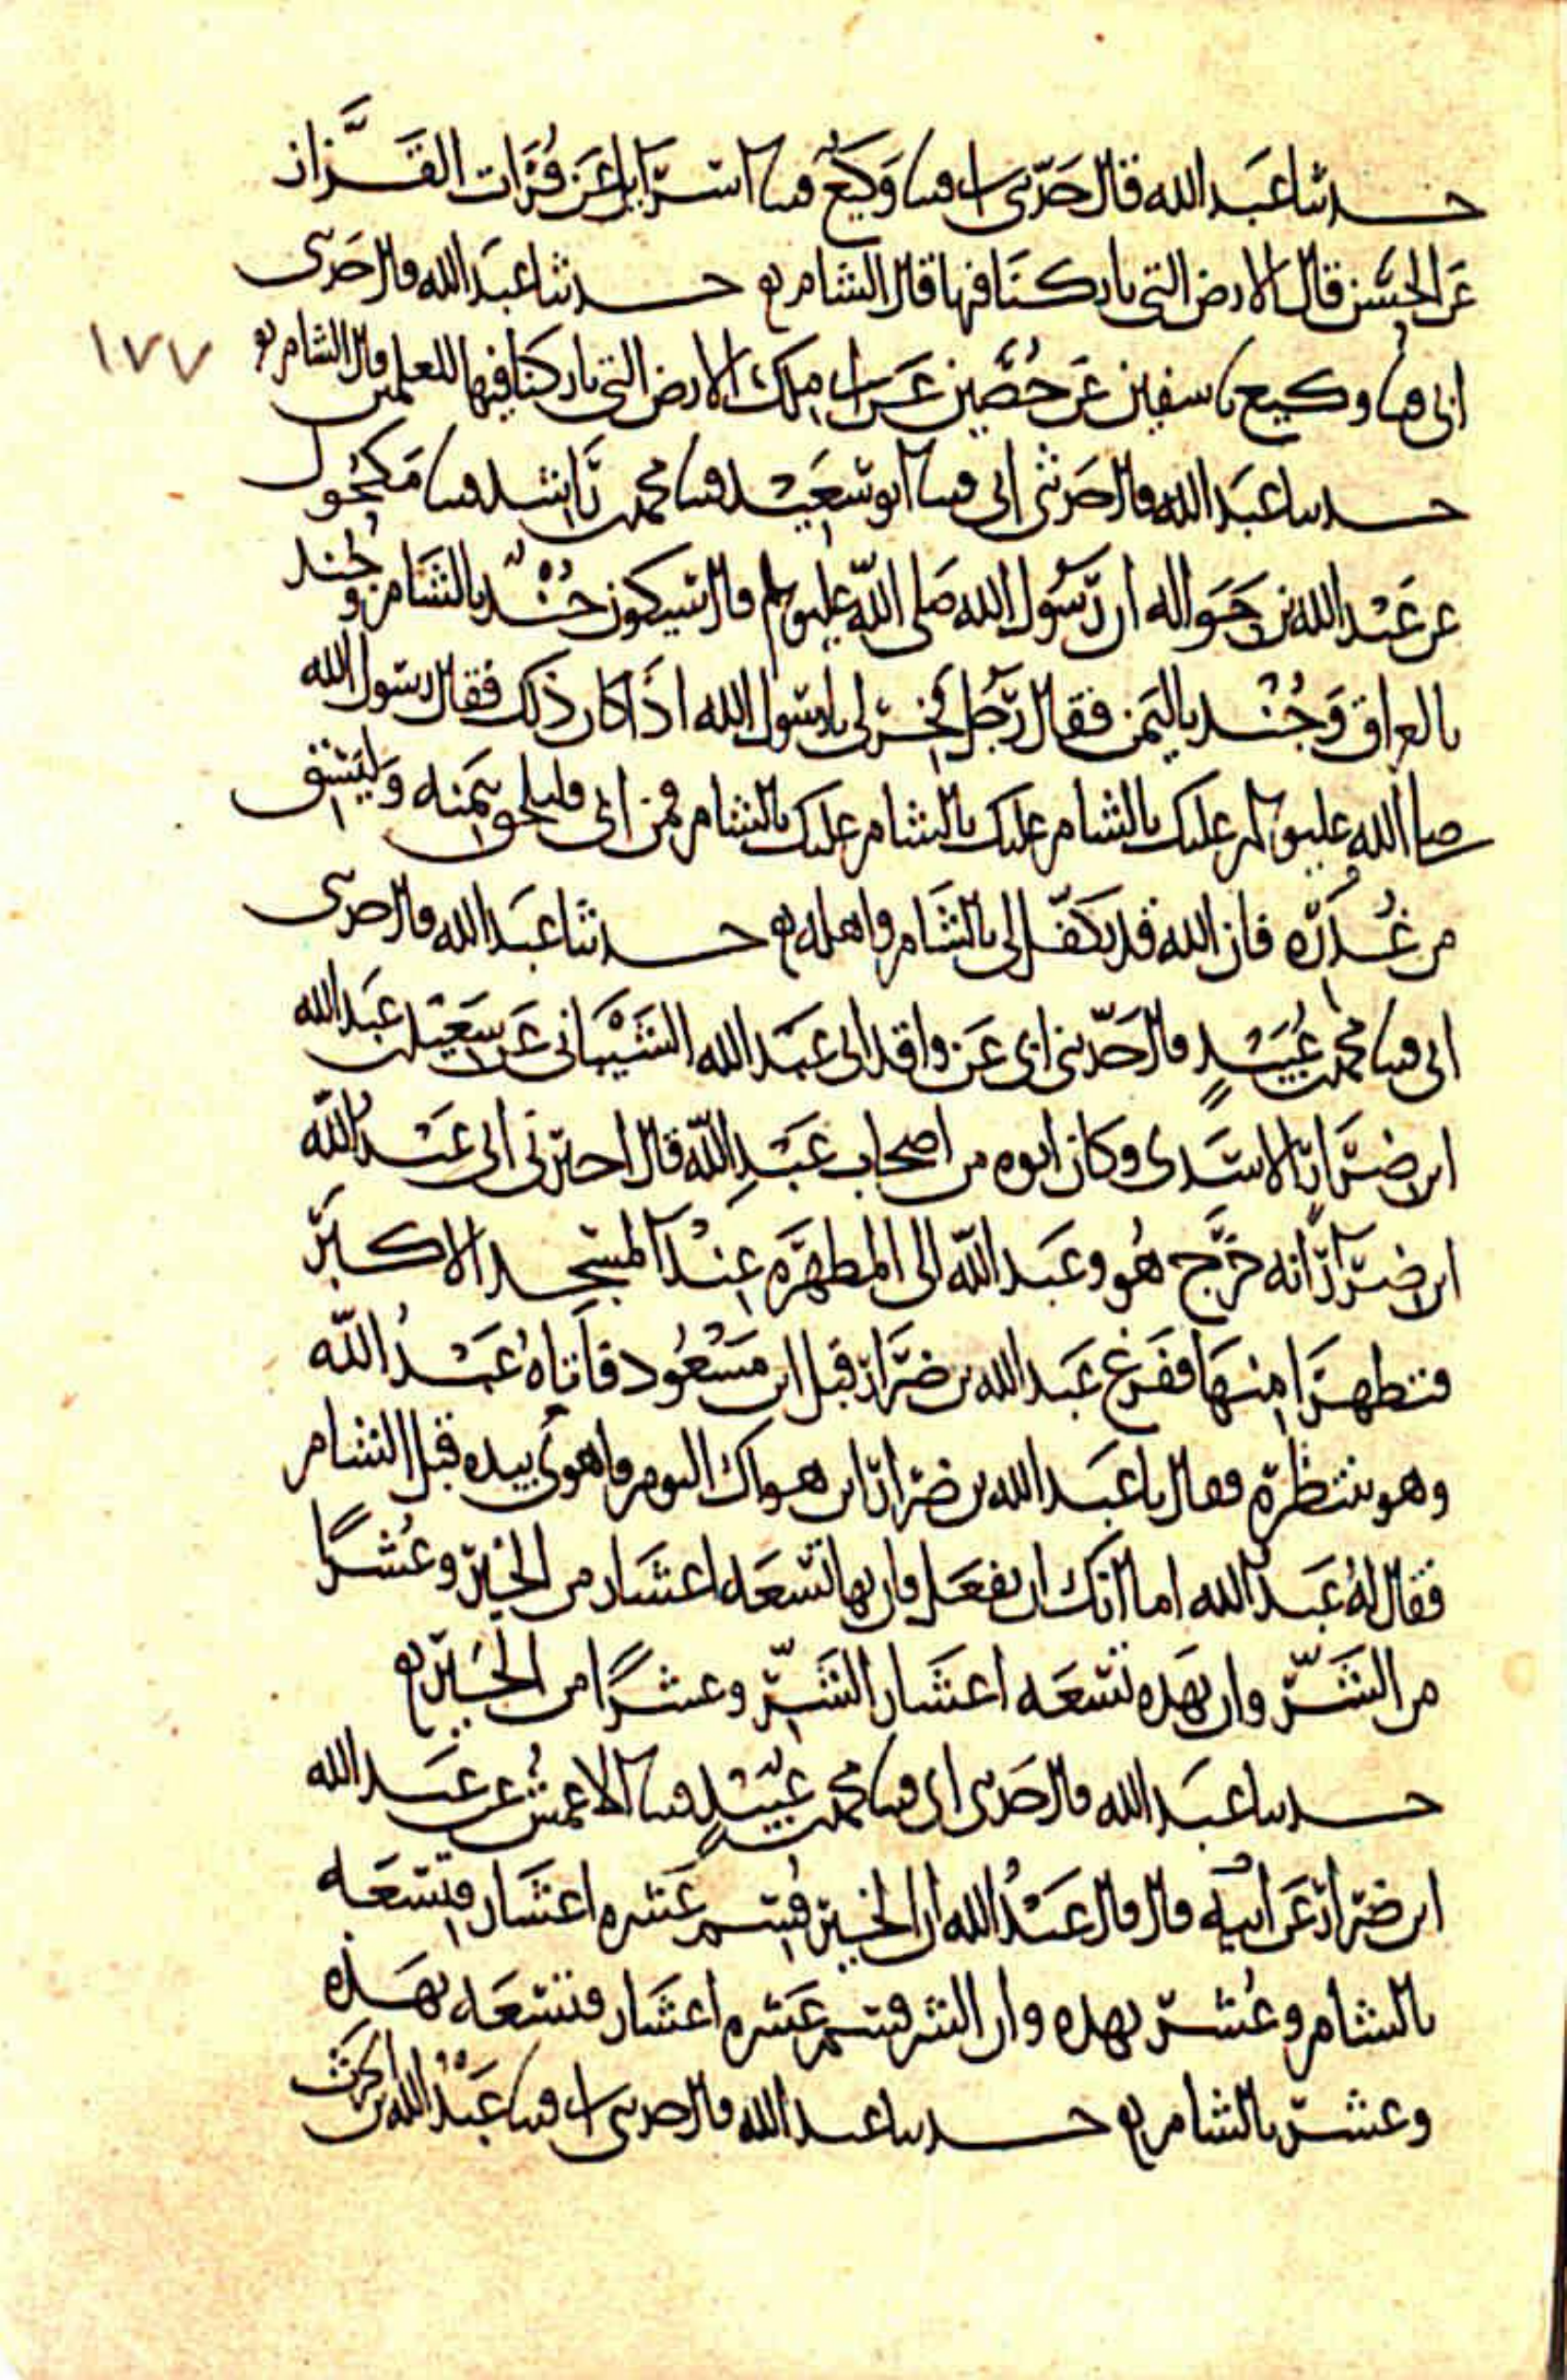 حدثنا عبد الله قال حدثني ابي قثنا وكيع قثنا اسرائيل عن فرات القزاز
عن الحسن قال الارض التي باركنا فيها قال الشام حدثنا عبد الله قال حدثني
ابي قثنا وكيع نا سفين عن حصين عن ابي ملك الارض التي باركنا فيها للعلمين قال الشام
١٧٧
حدثنا عبد الله قال حدثني ابي قثنا ابو سعيد قثنا محمد بن راشد قثنا مكحول
عن عبد الله بن حواله ان رسول الله صلى الله عليه وسلم قال سيكون جند بالشام وجند
بالعراق وجند باليمن فقال رجل خر لي يا رسول الله اذا كان ذلك فقال رسول الله
صلى الله عليه وسلم عليك بالشام عليك بالشام عليك بالشام فمن ابى فليلحق بيمنه وليسق
من غدره فان الله قد تكفل لي بالشام واهله حدثنا عبد الله قال حدثني
ابي قثنا محمد بن عبيد قال حدثني ابي عن واقد ابي عبد الله الشيباني عن سعيد بن عبد الله
ابن ضرار الاسدي وكان ابوه من اصحاب عبد الله قال اخبرني ابي عبد الله
ابن ضرار انه خرج هو وعبد الله الى المطهره عند المسجد الاكبر
فتطهرا منها ففرغ عبد الله بن ضرار قبل ابن مسعود فاتاه عبد الله
وهو ينتظره فقال يا عبد الله بن ضرار اين هواك اليوم واهوى بيده قبل الشام
فقال له عبد الله اما انك ان تفعل فان بها تسعه اعشار من الخير وعشرا
من الشر وان بهذه تسعه اعشار الشر وعشرا من الخير
حدثنا عبد الله قال حدثني ابي قثنا محمد بن عبيد قثنا الاعمش عن عبد الله
ابن ضرار عن ابيه قال قال عبد الله ان الخير قسم عشره اعشار فتسعه
بالشام وعشر بهذه وان الشر قسم عشره اعشار فتسعه بهذه
وعشر بالشام حدثنا عبد الله قال حدثني ابي قثنا عبد الله بن الحرث